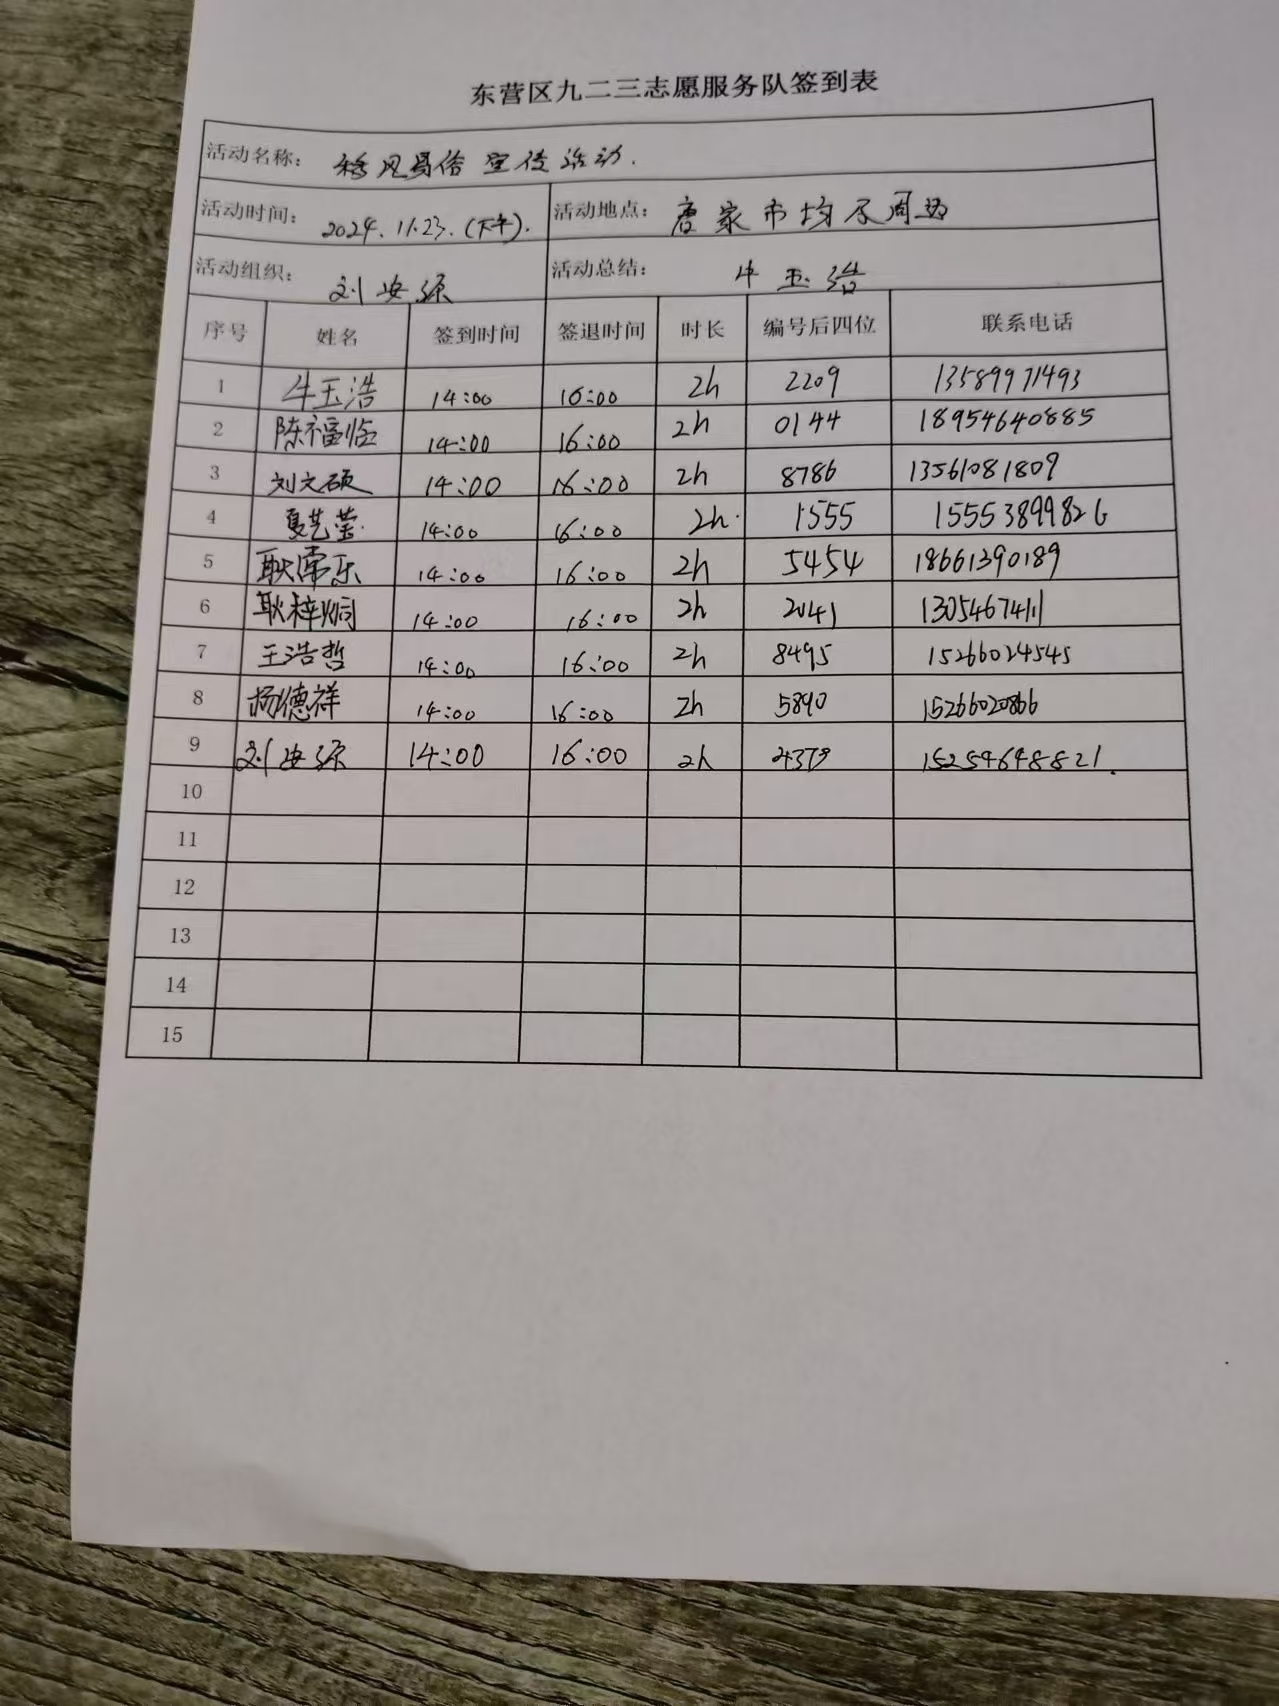 东营区九二三志愿服务队签到表
活动名称： 移风易俗宣传活动.
活动时间： 2024.11.23.(下午). 活动地点： 唐家市场及周边
活动组织： 刘安源 活动总结： 牛玉浩
序号 姓名 签到时间 签退时间 时长 编号后四位 联系电话
1 牛玉浩 14:00 16:00 2h 2209 13589971493
2 陈福临 14:00 16:00 2h 0144 18954640885
3 刘文硕 14:00 16:00 2h 8786 13561081809
4 夏艺莹. 14:00 16:00 2h. 1555 15553899826
5 耿 乐 14:00 16:00 2h 5454 18661390189
6 耿梓炯 14:00 16:00 2h 2041 13054674111
7 王浩哲 14:00 16:00 2h 8495 15266024545
8 杨德祥 14:00 16:00 2h 5890 15266020866
9 刘安源 14:00 16:00 2h 4379 15254648821.
10
11
12
13
14
15